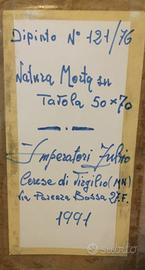 Dipinto N° 121/76
Natura Morta su
Tavola 50x70
Imperatori Fulvio
Cerese di Virgilio (MN)
via Parenza Bassa 27.F.
1991
Subito